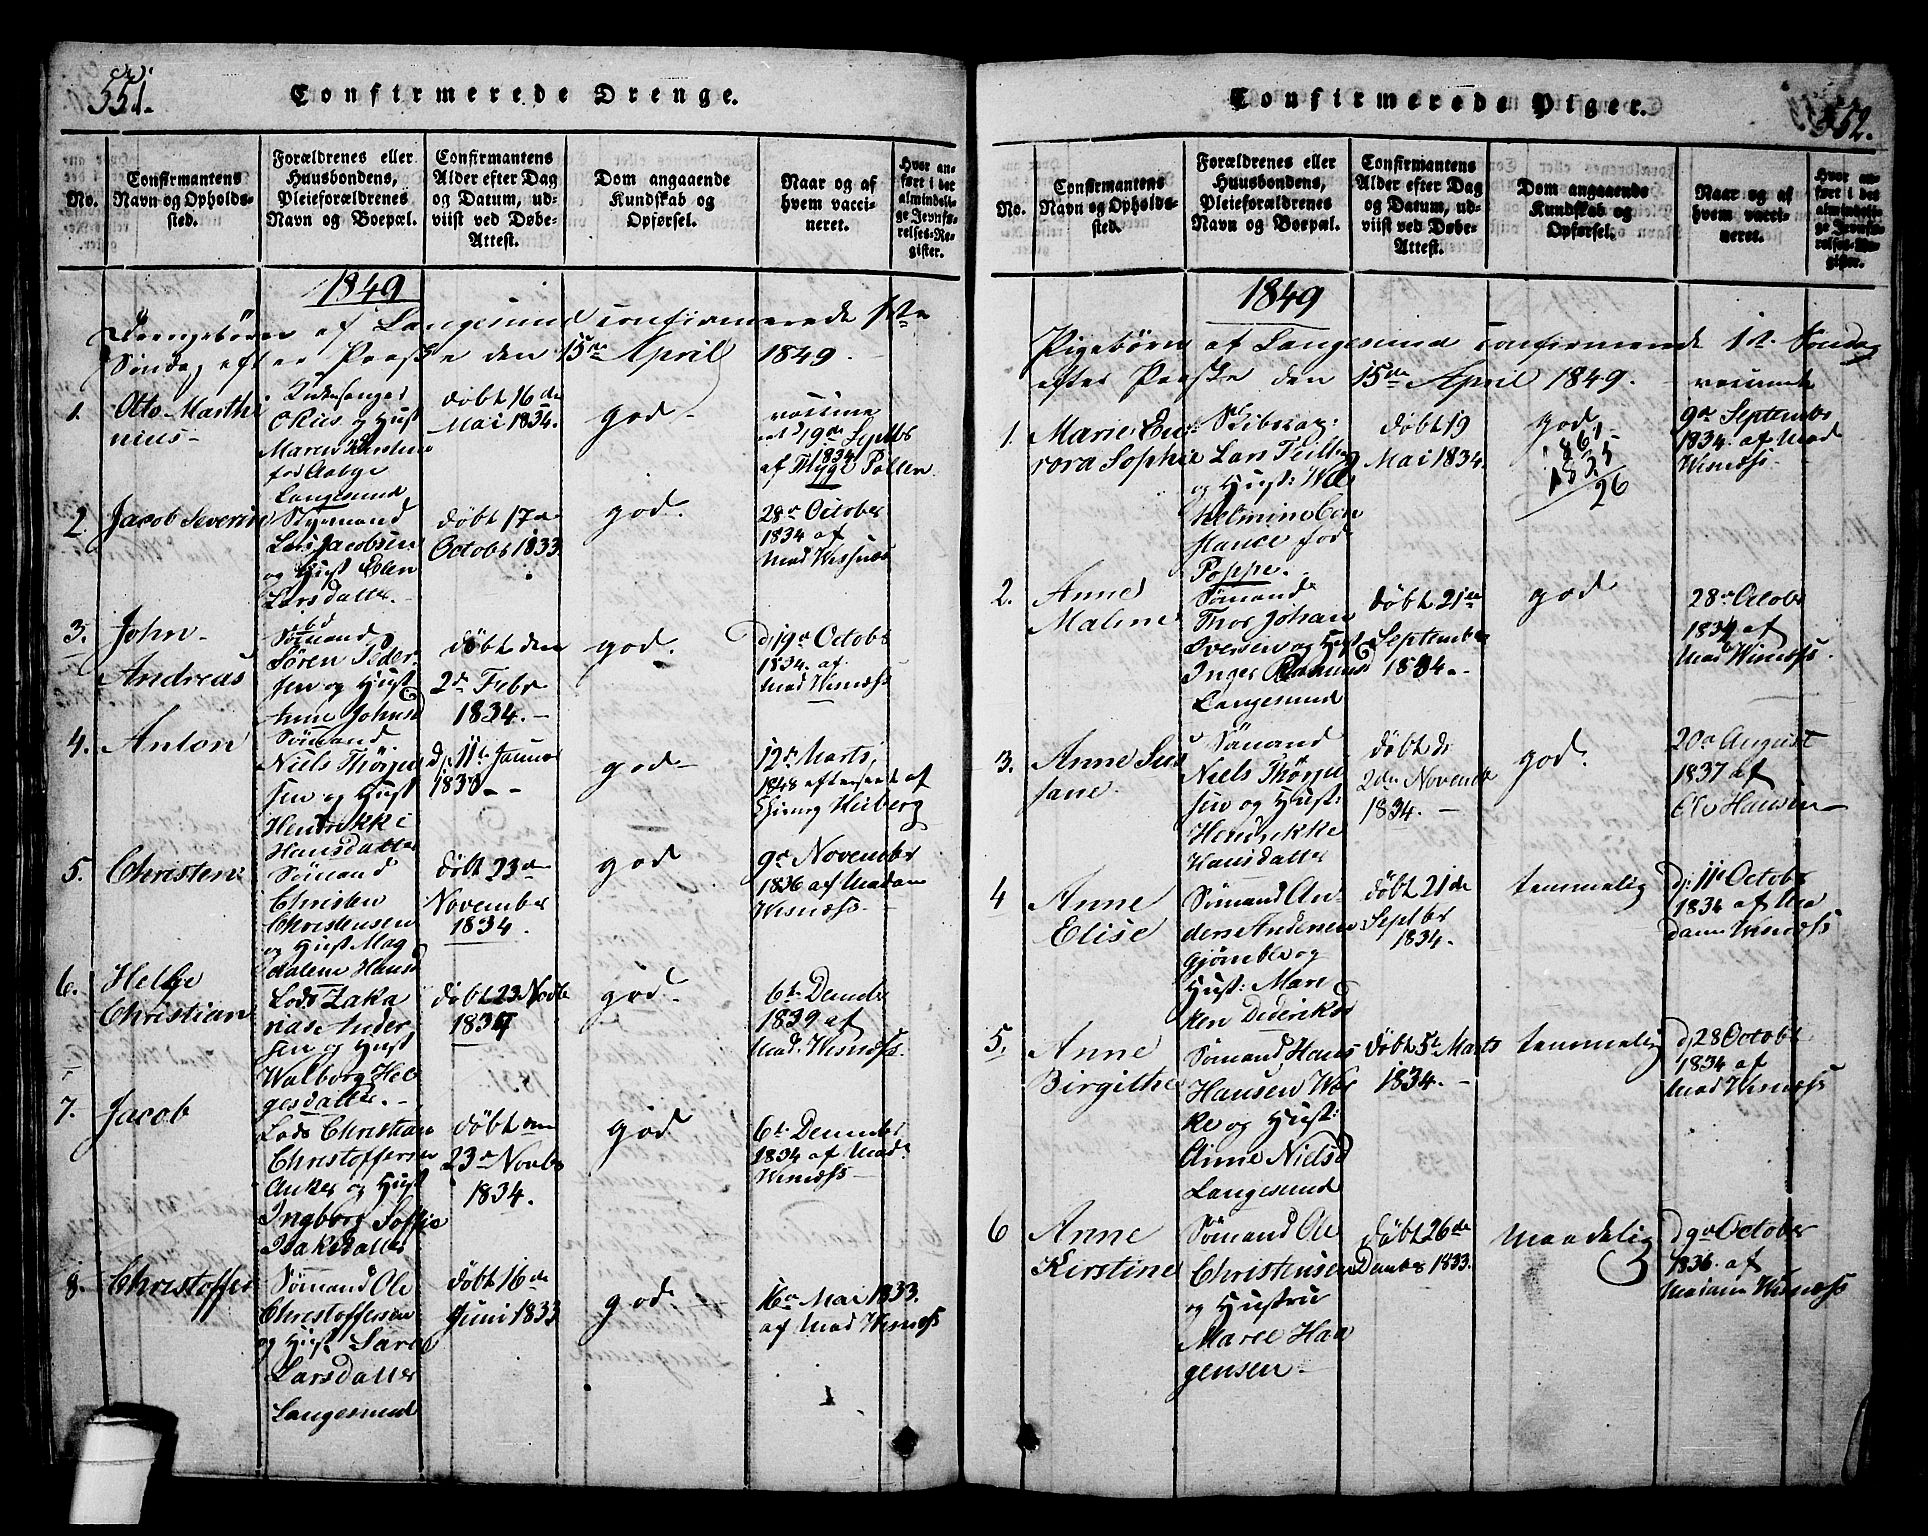 551.
Confirmerede Drenge.
No.
Confirmantens Navn og Opholdssted.
Forældrenes eller Huusbondens, Pleieforældrenes Navn og Boepæl.
Confirmantens Alder efter Dag og Datum, udviist ved Døbe-Attest.
Dom angaaende Kundskab og Opførsel.
Naar og af hvem vaccineret.
Hvor anført i det almindelige Jevnførelses-Register.
1849
Drengebørn af Langesund confirmerede 1ste
Søndag efter Paaske den 15de April 1849.
1.
Otto Marthi
nius
Kirkesanger
O Riis og Hust
Maren Kirstine
fød Aabye
Langesund
døbt 16de
Mai 1834.
god
vaccine
ret d 19de Septbr
1834
af Thyge Polten
2
Jacob Severin
Styrmand
Lars Jacobsen
og Hust Elen
Larsdatter.
døbt 17de
Octobr 1833
god.
28de October
1834 af
Mad Wisnæs
3.
John
Andreas
Sømand
Søren Peder
sen og Hust
Anne Johnsd
døbt den
2den Febr
1834.
god.
d 19de Octobr
1834. af
Mad Wisnæss
4.
Anton
Sømand
Niels Thørge
sen og Hust
Henrikke
Hansdatter
d. 11te Januar
1833
god
12te Marts
1848 efterseet af
Chirurg Kieberg
5.
Christen
Sømand
Christen
Christensen
og Hust Mag
dalene Hansd
døbt 23de
November
1834.
god
9de Novembr
1836 af Madam
Wisnæss.
6.
Helge
Christian
Lods Zaka
rias Ander
sen og Hust
Walborg Hel
gesdatter.
døbt 23 Novbr
1834
god.
6te Decmbr
1839 af
Mad. Wisnæss.
7.
Jacob
Lods Christian
Christoffersen
Anker og Hust
Ingborg Soffie
Isaksdatter
døbt den
23de Novbr
1834.
god
6te Decmber
1834 af Mad.
Wisnæss
8.
Christoffer
Sømand Ole
Christoffersen
og Hust Sara
Larsdatter
Langesund
døbt 16de
Juni 1833
god
16de Mai 1833.
af Mad Wisnæss
552.
Confirmerede Piger.
No.
Confirmantens Navn og Opholdssted.
Forældrenes eller Huusbondens, Pleieforældrenes Navn og Boepæl.
Confirmantens Alder efter Dag og Datum, udviist ved Døbe-Attest.
Dom angaaende Kundskab og Opførsel.
Naar og af hvem vaccineret.
Hvor anført i det almindelige Jevnførelses-Register.
1849
Pigebørn af Langesund confirmerede 1ste Søndag
efter Paaske den 15de April 1849.
1.
Marie Eu
rora Sophie
Skibscap:
Lars
og Hust: Wil
helmine Con
stance fød
Poppe.
døbt 19
Mai 1834.
god
1861
1835
26
vaccineret
9de Septembr
1834. af Mad
Wisnæss
2.
Anne
Malene
Sømand
Thor Johan
Iversen og Hust
Inger Rasmusd
Langesund
døbt 21de
September
1834.
god
28de Octobr
1834 af
Mad Wisnæss.
3.
Anne Su
sane
Sømand
Niels Thørge
sen og Hust:
Hendrikke
Hansdatter
døbt d
2den Novembr
1834.
god.
20de August
1837 af
Hansen
4
Anne
Elise
Sømand An
ders Andersen
Gjømble og
Hust: Mari
ken Dideriksd
døbt 21de
Septbr
1834.
temmelig
d: 11te Octobr
1834 af Ma
dam Wisnæss
5.
Anne
Birgithe
Sømand Hans
Hansen Wal
ke og Hust:
Anne Nielsd
Langesund
døbt 5te Marts
1834.
temmelig
d 28 Octobr
1834 af
Mad Wisnæss
6
Anne
Kirstine
Sømand Ole
Christensen
og Hustru
Maree Haa
gensen
døbt 26de
Decmber 1833.
maadelig
d 9de October
1836. af
Madam Wisnæss